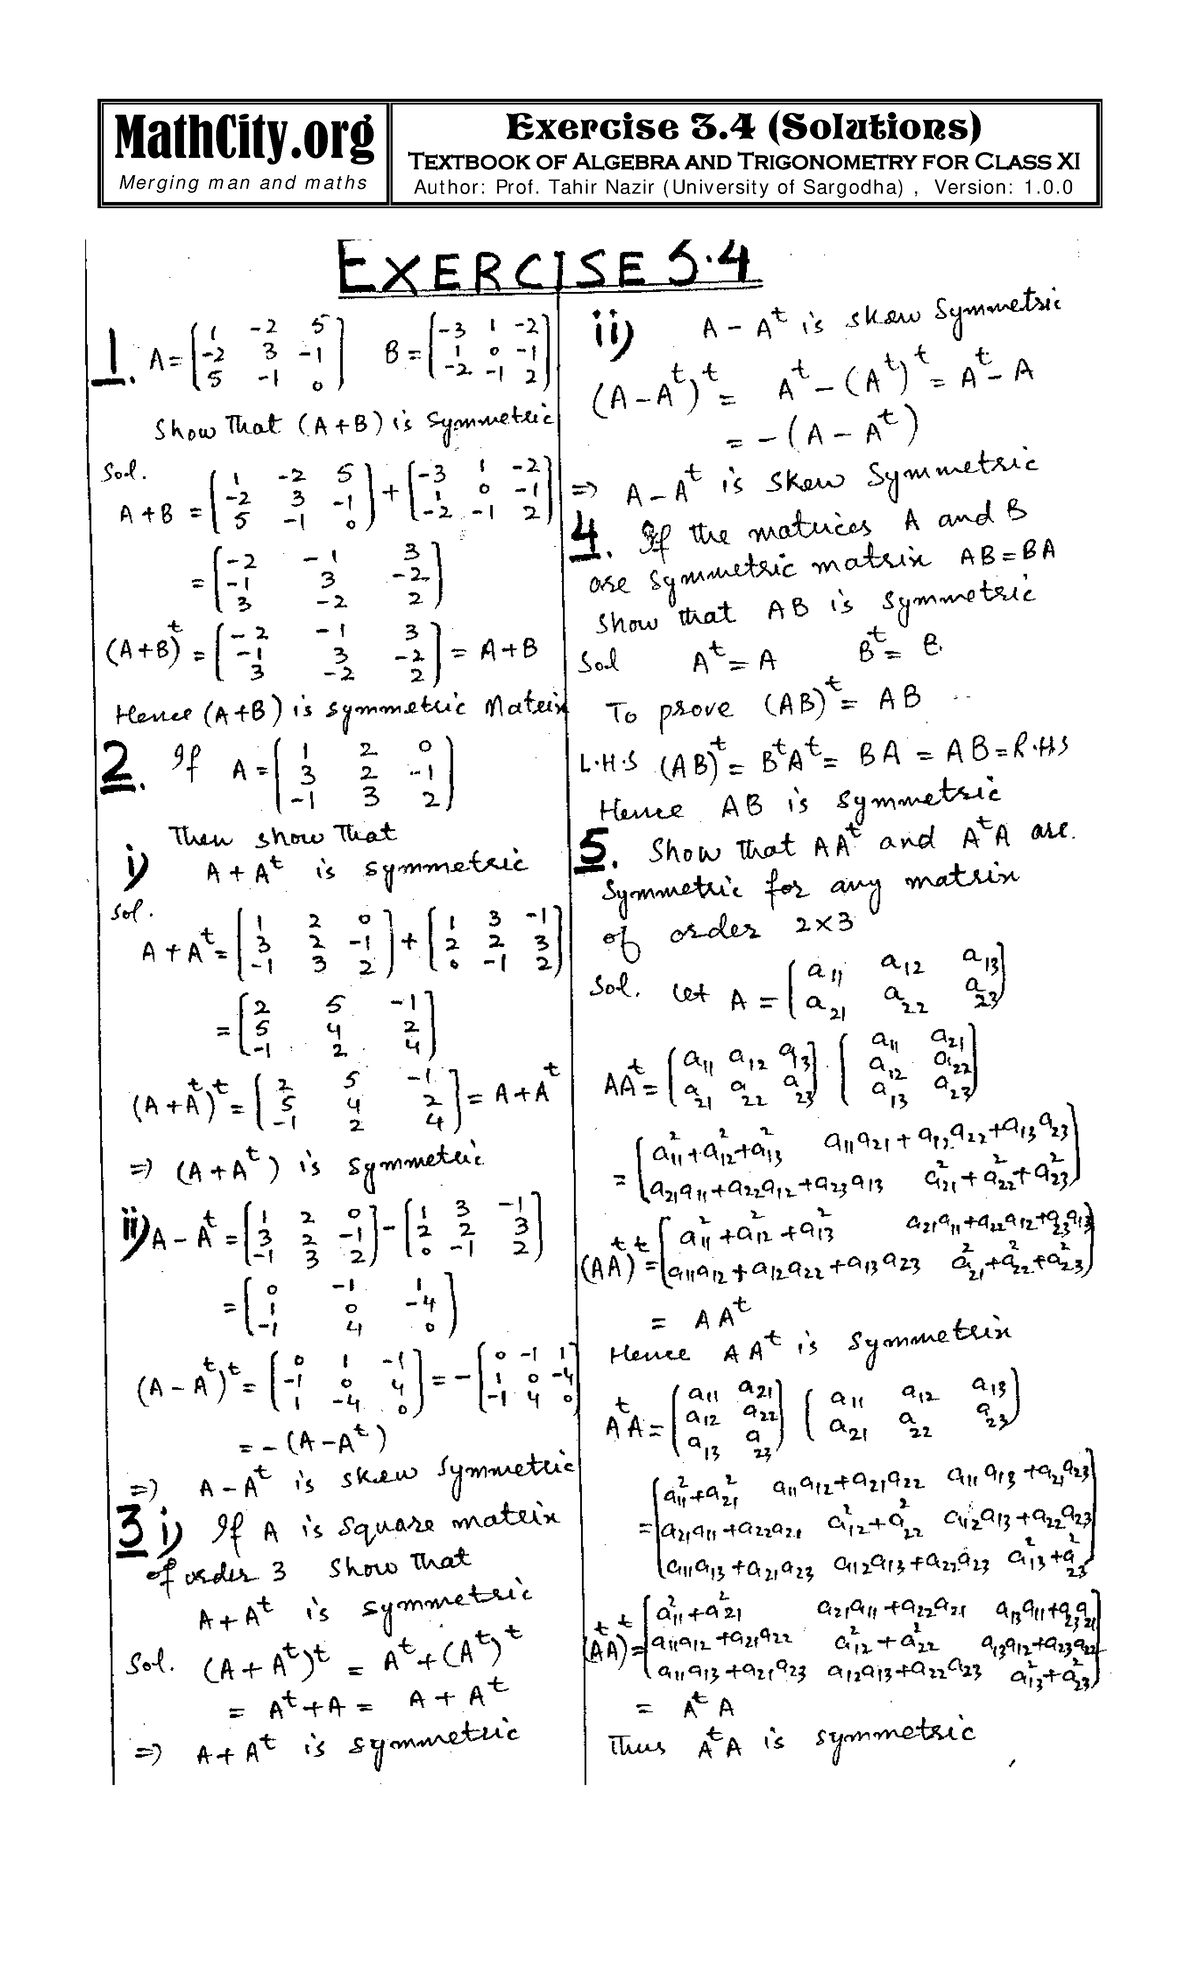 MathCity.org
Merging man and maths
Exercise 3.4 (Solutions)
TEXTBOOK OF ALGEBRA AND TRIGONOMETRY FOR CLASS XI
Author: Prof. Tahir Nazir (University of Sargodha) , Version: 1.0.0
EXERCISE 3.4
1. A = [1 -2 5; -2 3 -1; 5 -1 0] B = [-3 1 -2; 1 0 -1; -2 -1 2]
Show That (A+B) is Symmetric
Sol.
A+B = [1 -2 5; -2 3 -1; 5 -1 0] + [-3 1 -2; 1 0 -1; -2 -1 2]
= [-2 -1 3; -1 3 -2; 3 -2 2]
(A+B)^t = [-2 -1 3; -1 3 -2; 3 -2 2] = A+B
Hence (A+B) is symmetric Matrix
2. If A = [1 2 0; 3 2 -1; -1 3 2]
Then show That
i) A+A^t is symmetric
Sol.
A+A^t = [1 2 0; 3 2 -1; -1 3 2] + [1 3 -1; 2 2 3; 0 -1 2]
= [2 5 -1; 5 4 2; -1 2 4]
(A+A^t)^t = [2 5 -1; 5 4 2; -1 2 4] = A+A^t
⇒ (A+A^t) is symmetric
ii) A-A^t = [1 2 0; 3 2 -1; -1 3 2] - [1 3 -1; 2 2 3; 0 -1 2]
= [0 -1 1; 1 0 -4; -1 4 0]
(A-A^t)^t = [0 1 -1; -1 0 4; 1 -4 0] = -[0 -1 1; 1 0 -4; -1 4 0]
= -(A-A^t)
⇒ A-A^t is skew symmetric
3 i) If A is square matrix
of order 3 Show that
A+A^t is symmetric
Sol. (A+A^t)^t = A^t+(A^t)^t
= A^t+A = A+A^t
⇒ A+A^t is symmetric
ii) A-A^t is skew symmetric
(A-A^t)^t = A^t-(A^t)^t = A^t-A
= -(A-A^t)
⇒ A-A^t is skew symmetric
4. If the matrices A and B
are symmetric matrix AB=BA
Show that AB is symmetric
Sol A^t=A B^t=B
To prove (AB)^t = AB
L.H.S (AB)^t = B^tA^t = BA = AB = R.H.S
Hence AB is symmetric
5. Show that AA^t and A^tA are.
symmetric for any matrix
of order 2×3
Sol. Let A = [a11 a12 a13; a21 a22 a23]
AA^t = [a11 a12 a13; a21 a22 a23] . [a11 a21; a12 a22; a13 a23]
= [a11²+a12²+a13² a11a21+a12a22+a13a23; a21a11+a22a12+a23a13 a21²+a22²+a23²]
(AA^t)^t = [a11²+a12²+a13² a21a11+a22a12+a23a13; a11a12+a12a22+a13a23 a21²+a22²+a23²]
= AA^t
Hence AA^t is symmetrix
A^tA = [a11 a21; a12 a22; a13 a23] [a11 a12 a13; a21 a22 a23]
= [a11²+a21² a11a12+a21a22 a11a13+a21a23; a21a11+a22a21 a12²+a22² a12a13+a22a23; a11a13+a21a23 a12a13+a22a23 a13²+a23²]
(A^tA)^t = [a11²+a21² a21a11+a22a21 a13a11+a23a21; a11a12+a21a22 a12²+a22² a13a12+a23a22; a11a13+a21a23 a12a13+a22a23 a13²+a23²]
= A^tA
Thus A^tA is symmetric